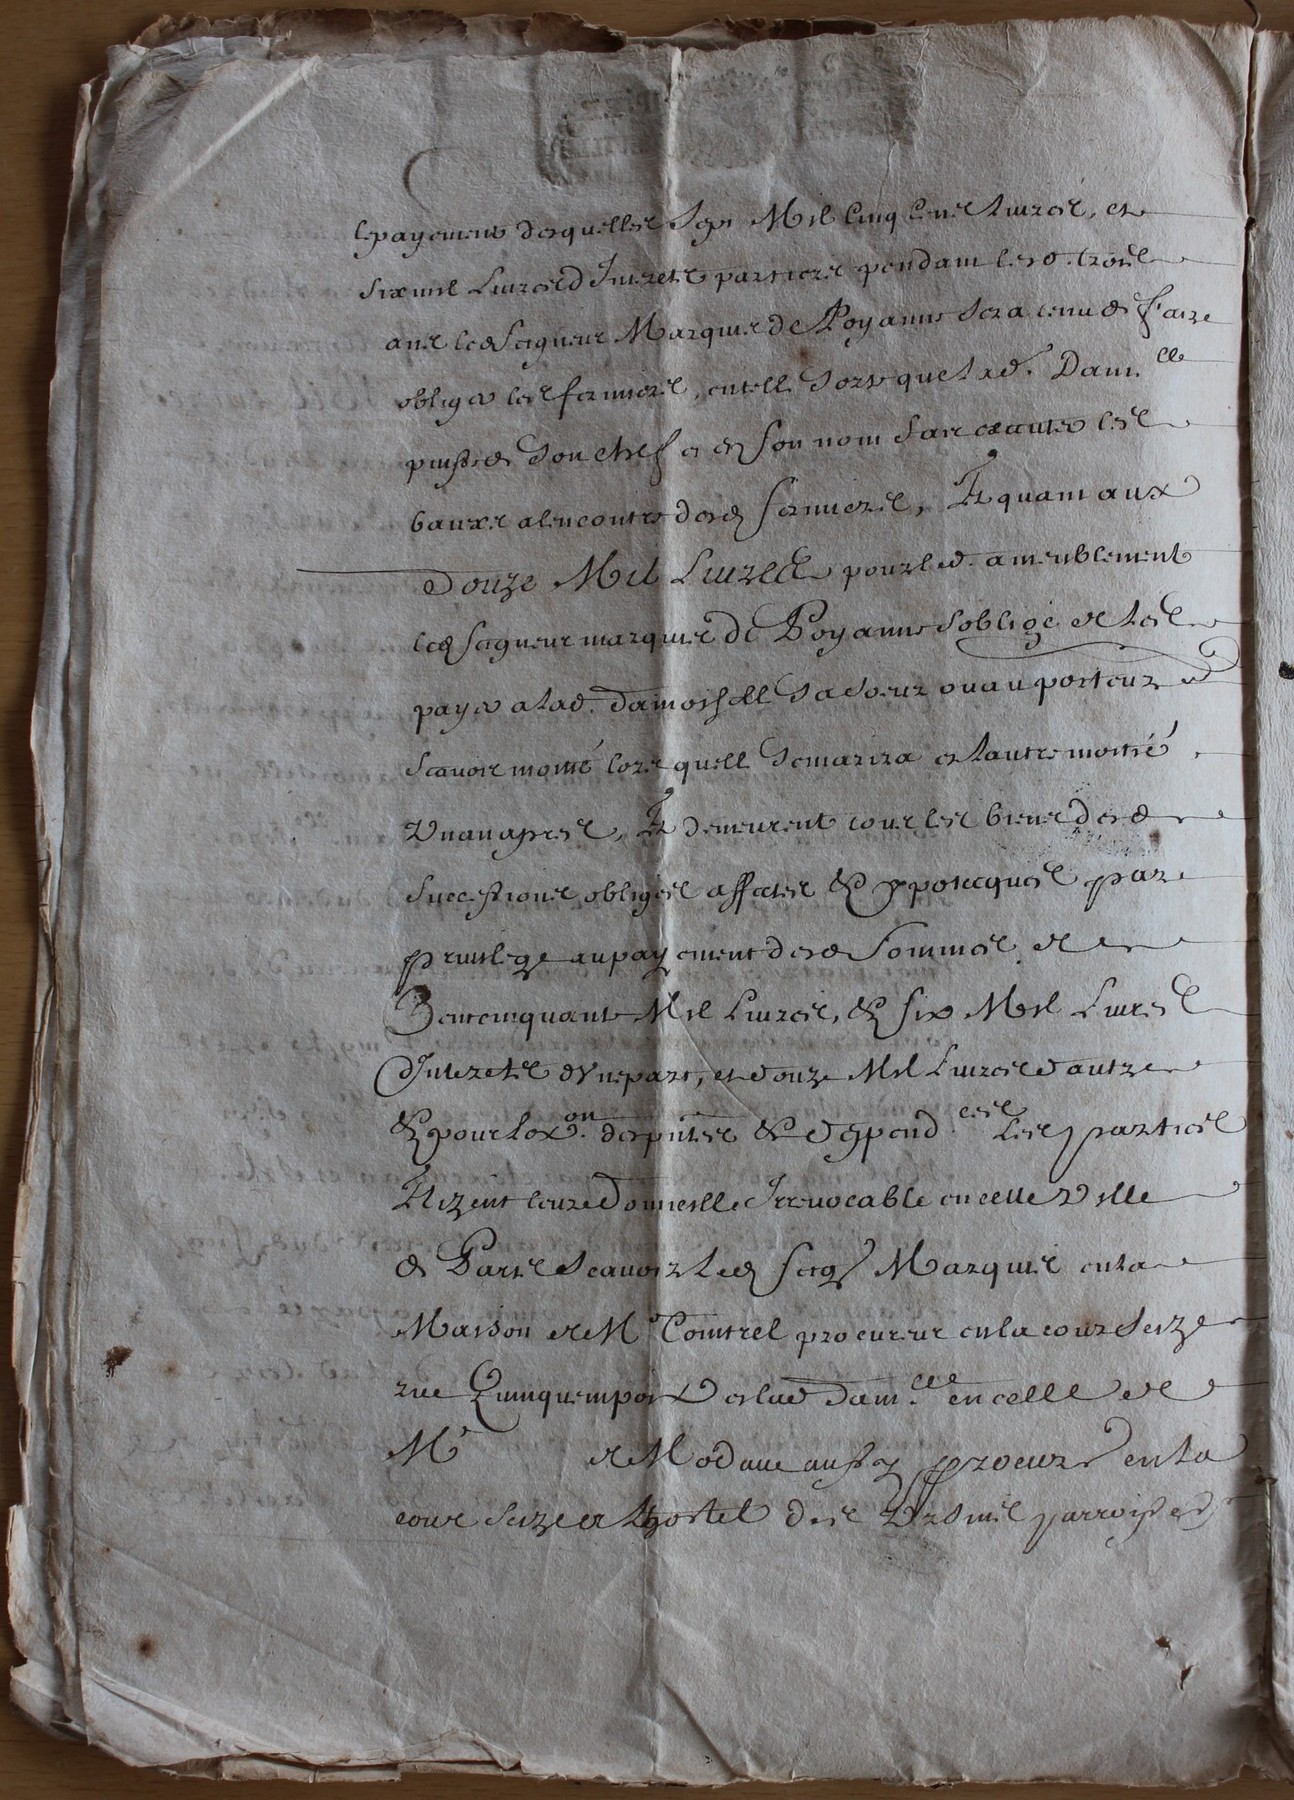 le payement desquelles sept Mil Cinq Cens Livres, et
six mil Livres d Interetz par tiers pendant lesd. trois
ans led Seigneur Marquis de Poyanne sera tenu de faire
obliger les fermiers, en telle sorte que lad. Dam.lle
puisse de son chef et en son nom faire executer les
baux a lencontre desd fermiers, Et quant aux
Douze Mil Livres pour led. ameublement
led Seigneur marquis de Poyanne s oblige de les
payer a lad. damoiselle sa soeur ou au porteur
scavoir moitié lors quelle se marira et lautre moitié
Un an apres, Et demeurent tous les biens desd
successions obligés affectés & ypotecqués par
privilege au payement desd sommes de
Cent cinquante Mil Livres, & six Mil Livres
d Interetz d Une part, et douze Mil Livres d autre
& pour lex.on des pntes & depend.ces les parties
Elizent leur domicille Irrevocable en cette Ville
de Paris scavoir led seigr Marquis en la
Maison de Me Tomtrel procureur en la cour seize
rue Quinquempoix et lad dam.lle en celle de
Me de Modave aussy procur en la
cour seize a Lhostel des Ursins parroisse